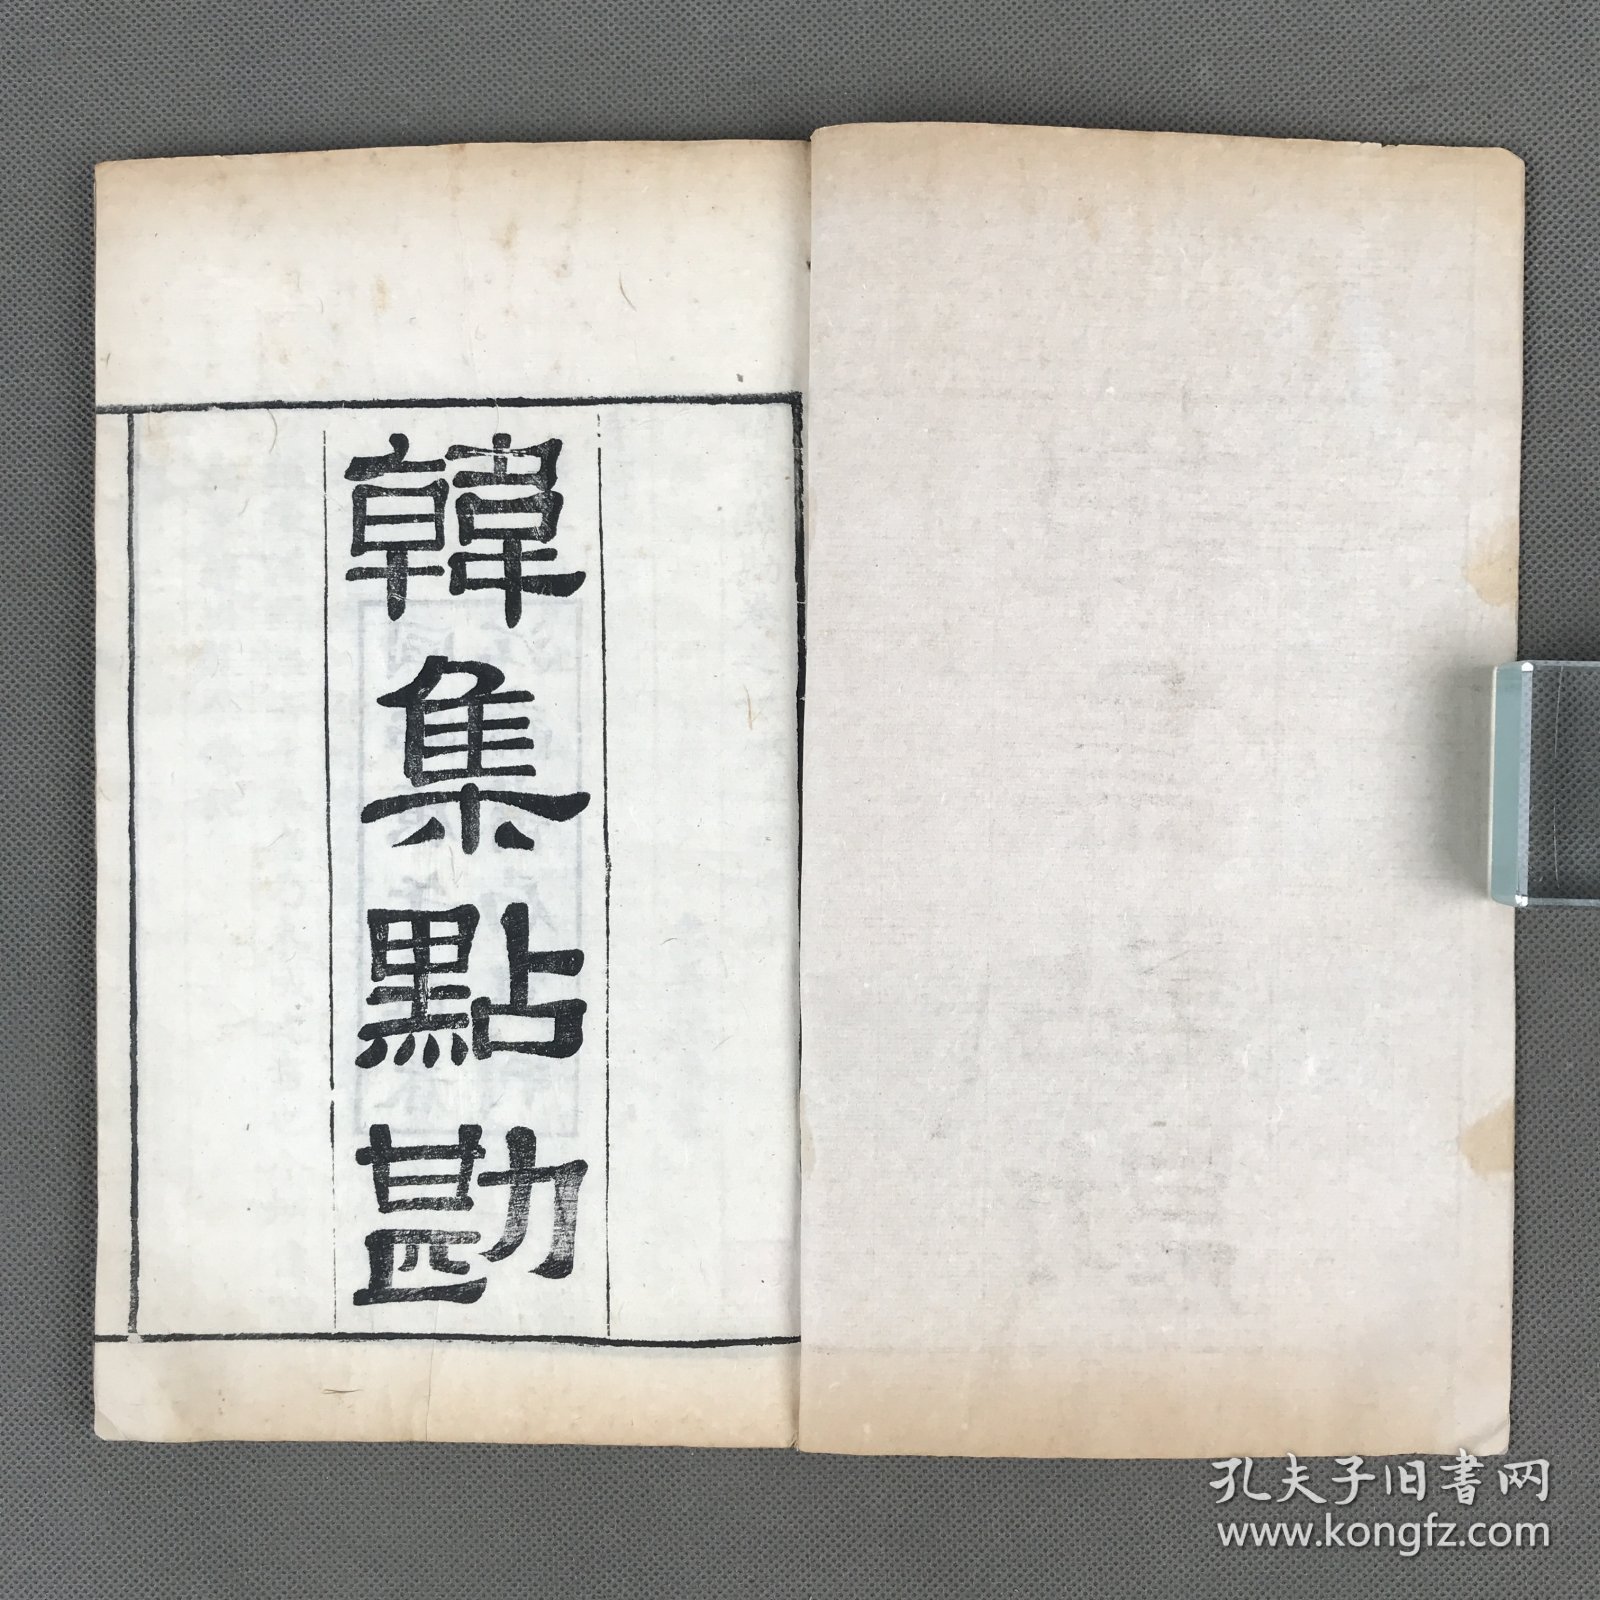 韓集點勘
孔夫子旧书网
www.kongfz.com